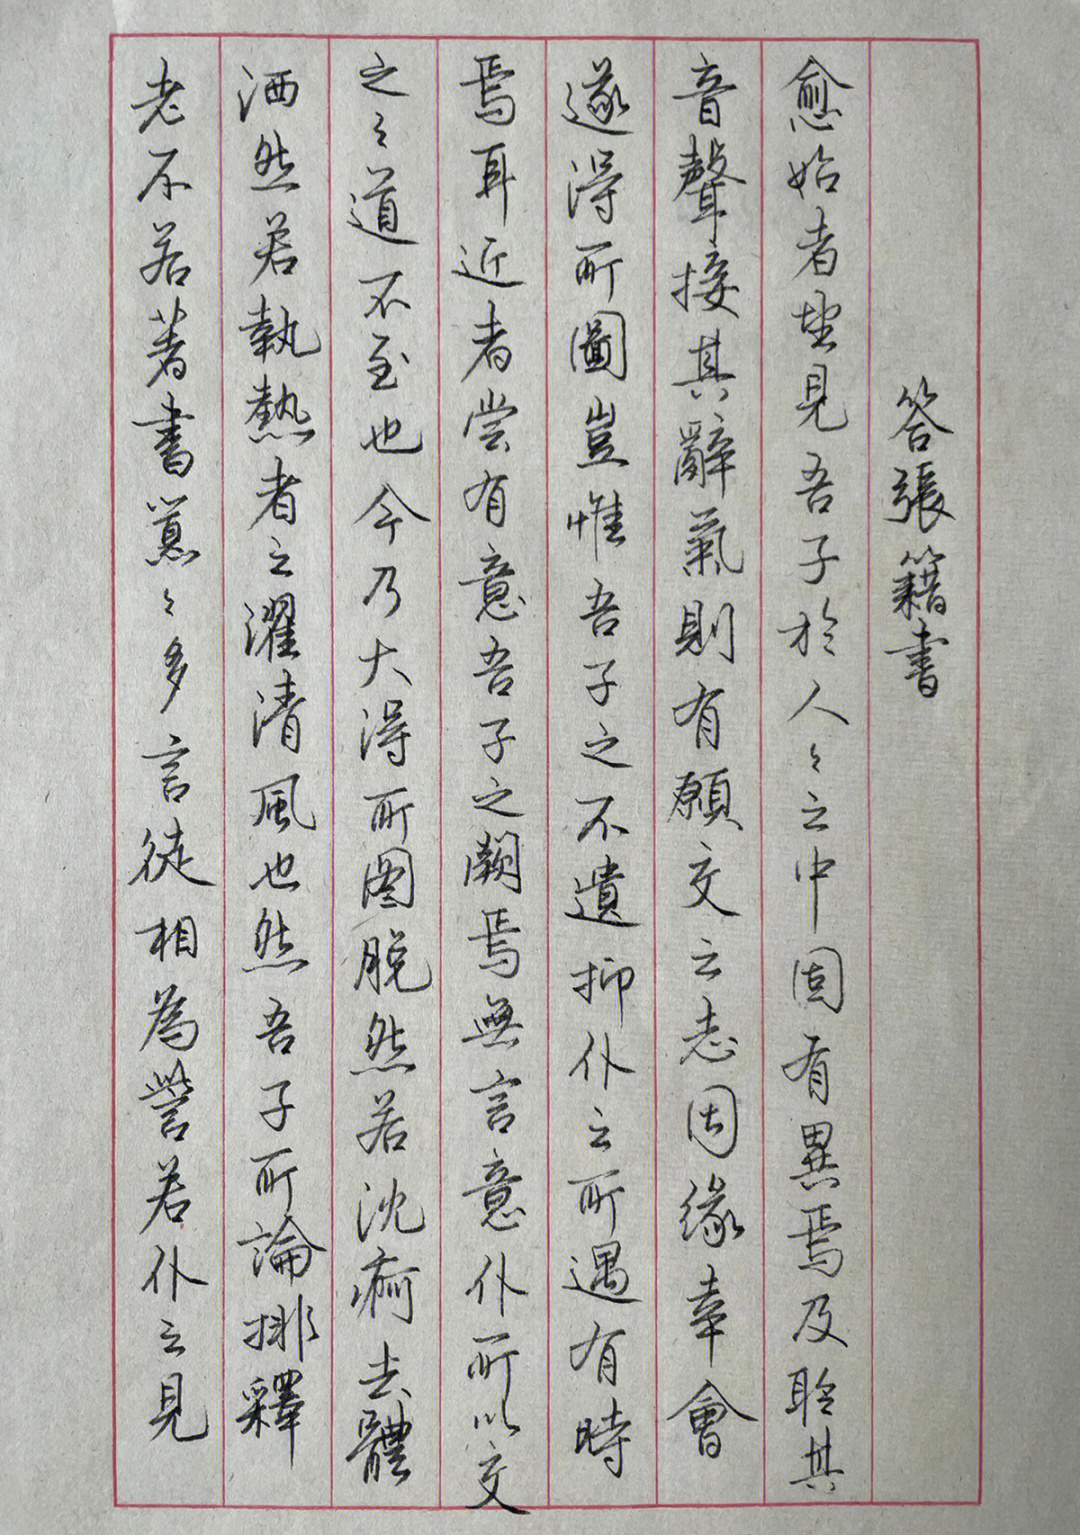 答張籍書
愈始者望見吾子於人〻之中固有異焉及聆其
音聲接其辭氣則有願交之志因緣幸會
遂得所圖豈惟吾子之不遺抑仆之所遇有時
焉耳近者嘗有意吾子之闕焉無言意仆所以交
之〻道不至也今乃大得所图脫然若沈疴去體
洒然若執熱者之濯清風也然吾子所論排釋
老不若著書囂〻多言徒相為訾若仆之見